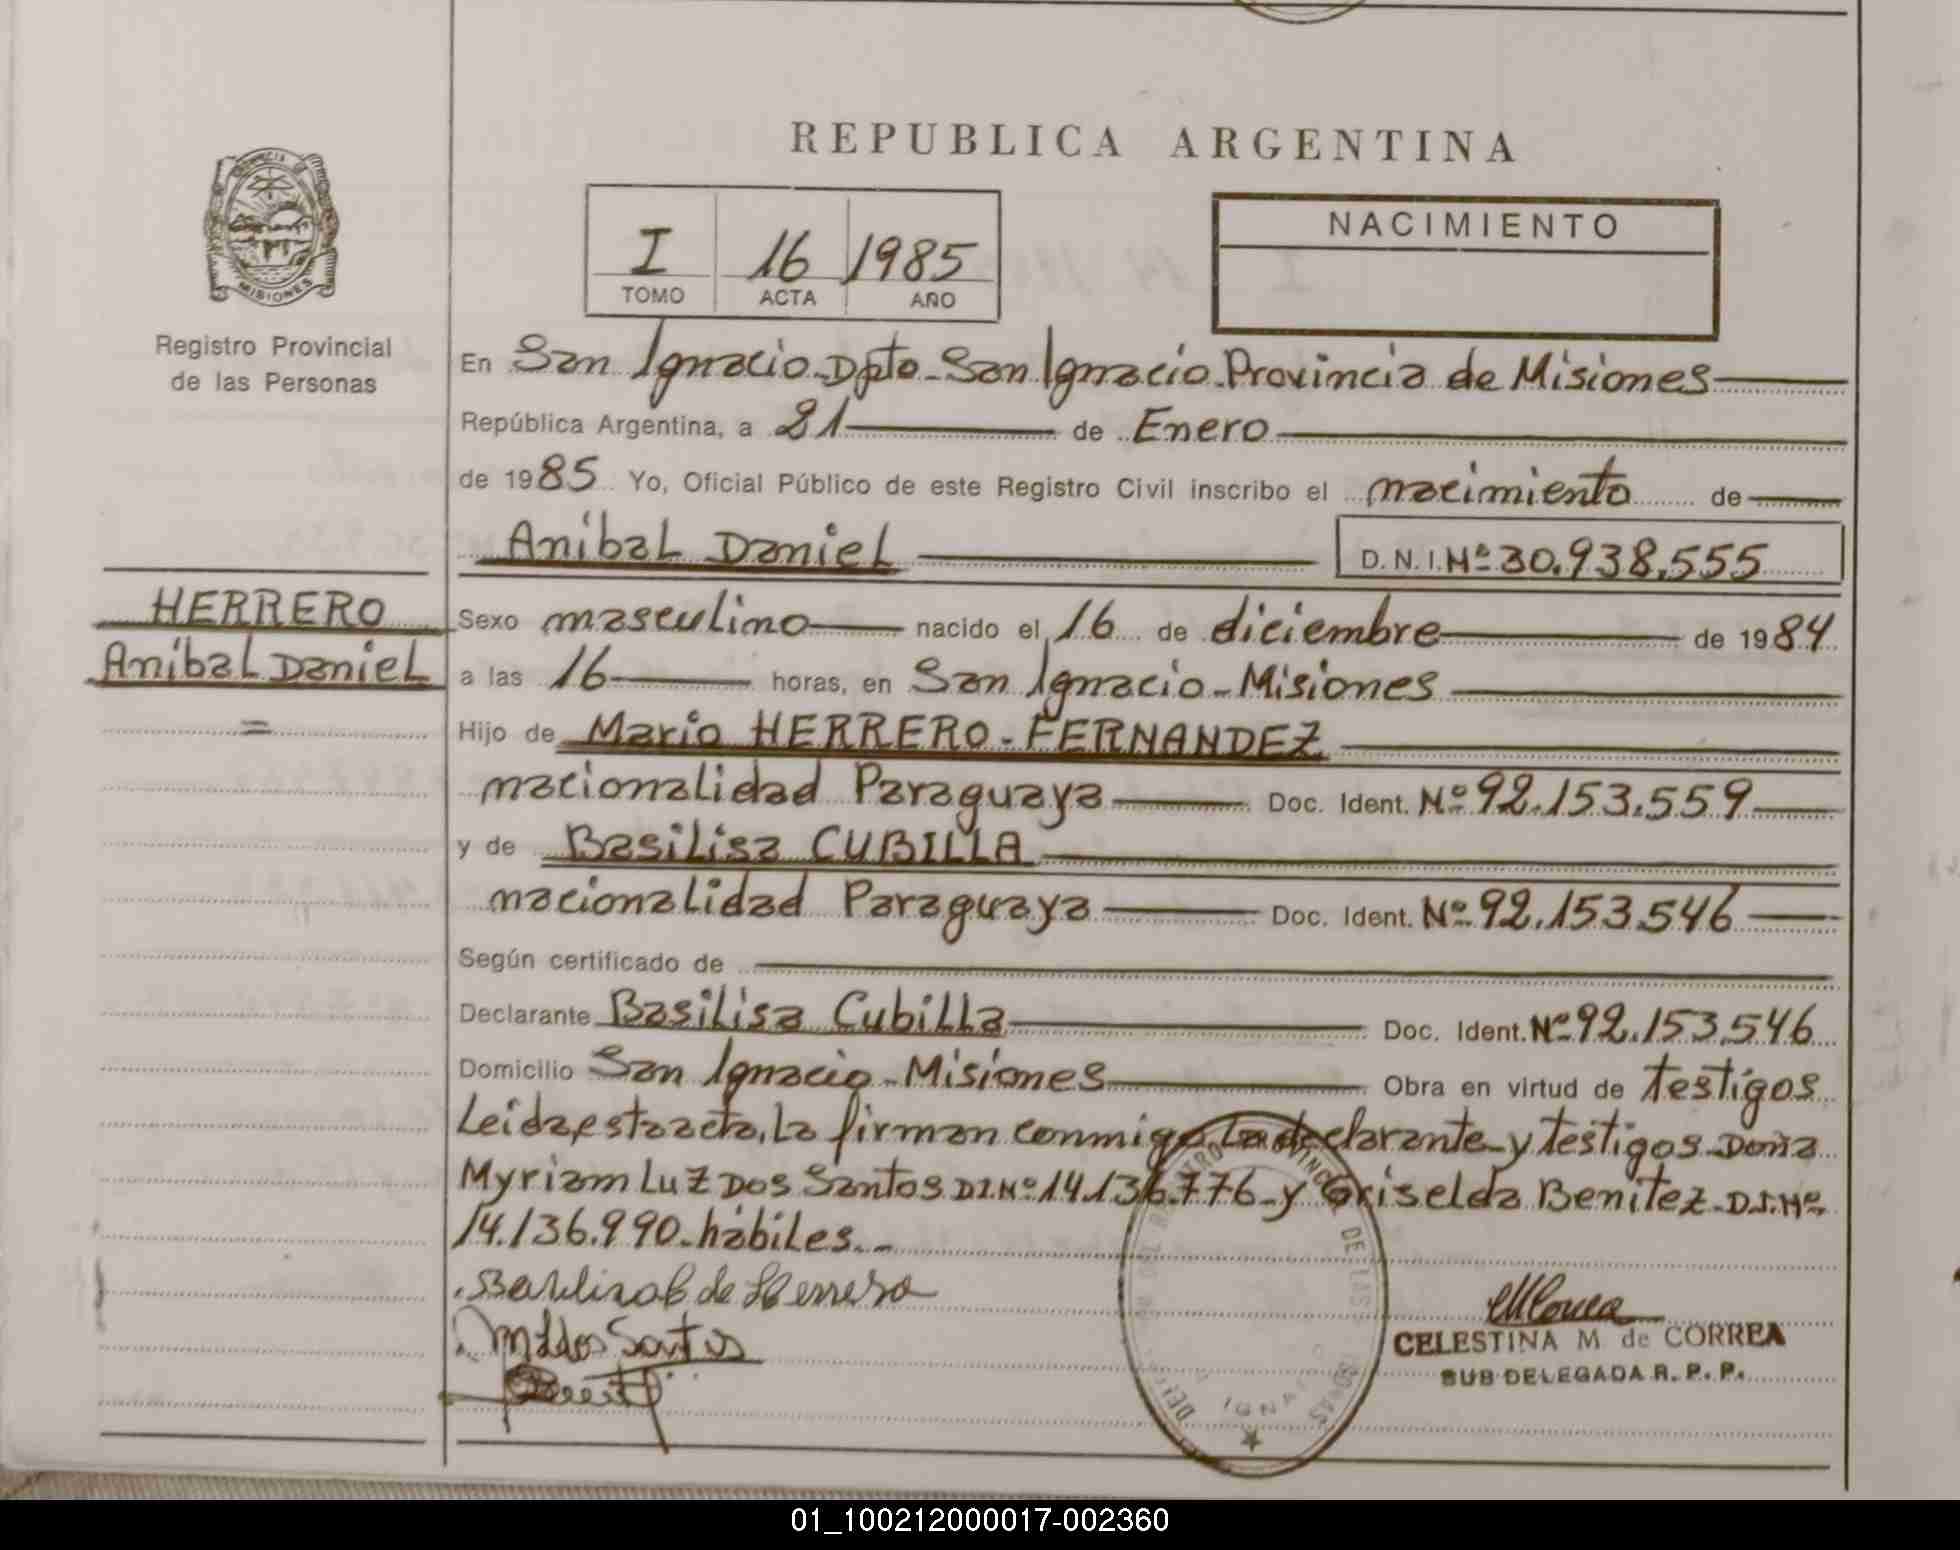 REPUBLICA ARGENTINA
MISIONES
Registro Provincial
de las Personas
I 16 1985
TOMO ACTA AÑO
NACIMIENTO
En San Ignacio-Dpto-San Ignacio-Provincia de Misiones
República Argentina, a 21 de Enero
de 1985 Yo, Oficial Público de este Registro Civil inscribo el nacimiento de
Aníbal Daniel D.N.I. Nº 30.938.555
HERRERO
Aníbal Daniel
=
Sexo masculino nacido el 16 de diciembre de 1984
a las 16 horas, en San Ignacio-Misiones
Hijo de Mario HERRERO-FERNANDEZ
nacionalidad Paraguaya Doc. Ident. Nº 92.153.559
y de Basilisa CUBILLA
nacionalidad Paraguaya Doc. Ident. Nº 92.153.546
Según certificado de
Declarante Basilisa Cubilla Doc. Ident. Nº 92.153.546
Domicilio San Ignacio-Misiones Obra en virtud de testigos
Leída esta acta, la firman conmigo la declarante y testigos Doña
Myriam Luz Dos Santos DI.Nº 14.136.776-y Griselda Benítez-D.I.Nº
14.136.990-hábiles.-
de Herrero
MLdos Santos
CELESTINA M de CORREA
SUB DELEGADA R. P. P.
DE LAS
01_100212000017-002360